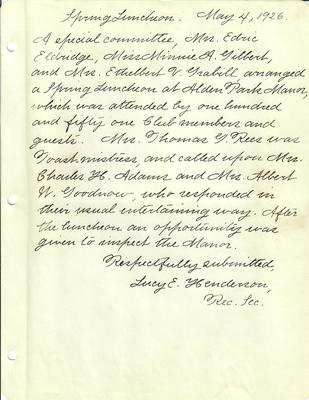 Spring Luncheon. May 4, 1926.
A special committee, Mrs. Edric
Eldridge, Miss Minnie A. Gilbert,
and Mrs. Ethelbert V. Grabill arranged
a Spring Luncheon at Alden Park Manor,
which was attended by one hundred
and fifty one Club members and
guests. Mrs. Thomas G. Rees was
Toastmistress, and called upon Mrs.
Charles H. Adams and Mrs. Albert
W. Goodnow, who responded in
their usual entertaining way. After
the luncheon an opportunity was
given to inspect the Manor.
Respectfully submitted,
Lucy E. Henderson,
Rec. Sec.